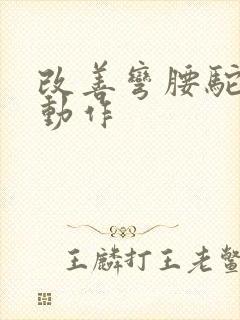 改善彎腰駝
動作
王麟打王老